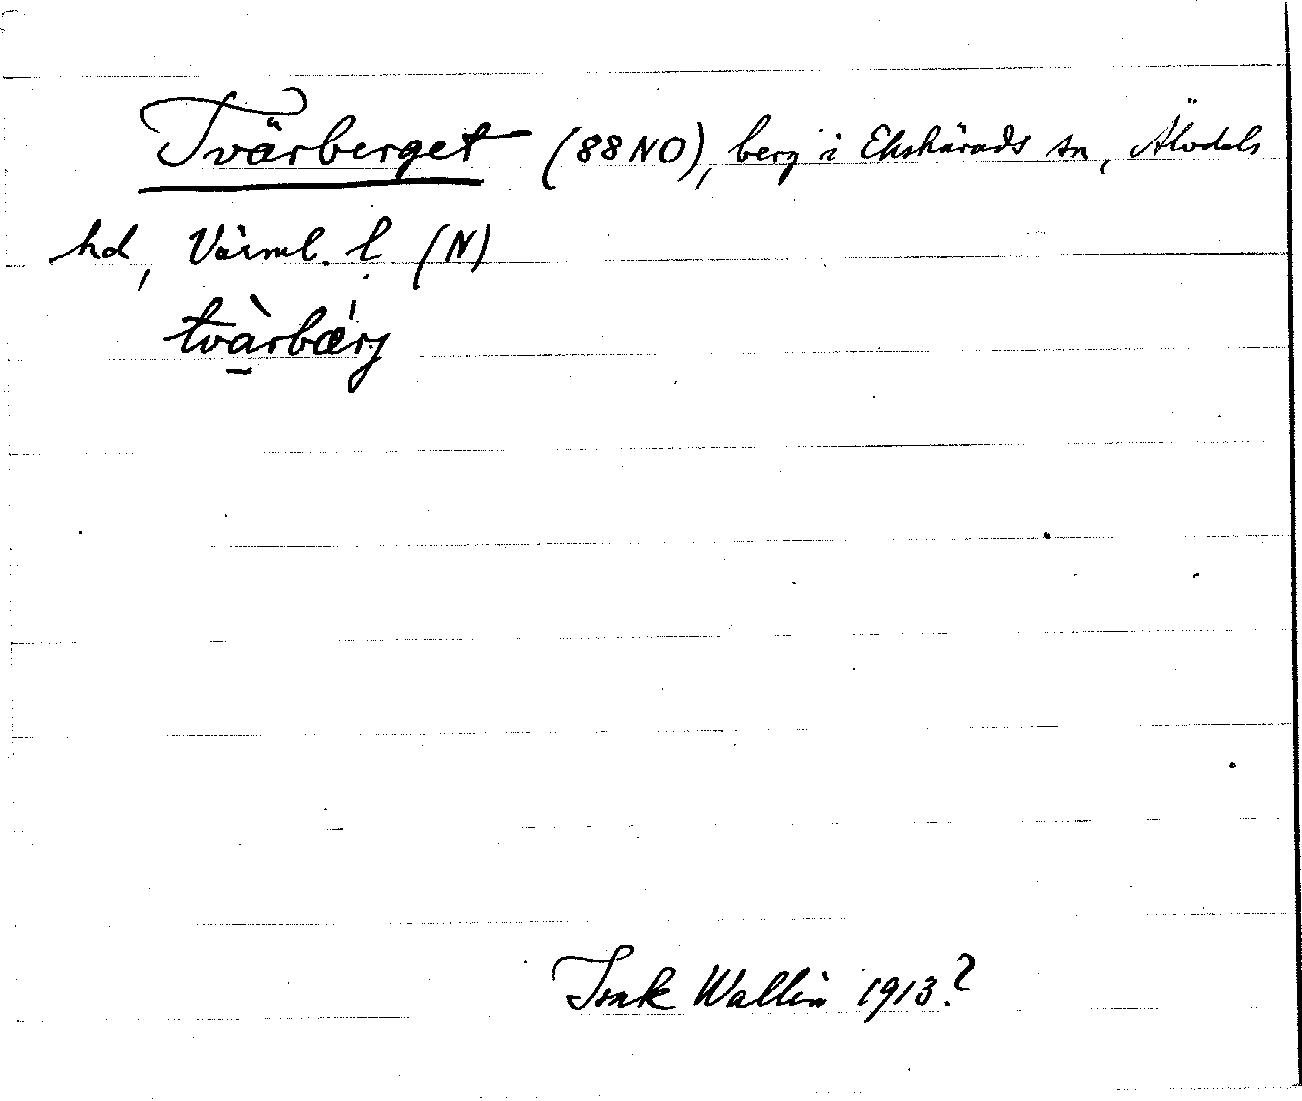 Tvärberget (88 NO), berg i Ekshärads sn, Älvdals
hd, Värml. l. (N)
tvà̱rbæ̍rj
Isak Wallin 1913?